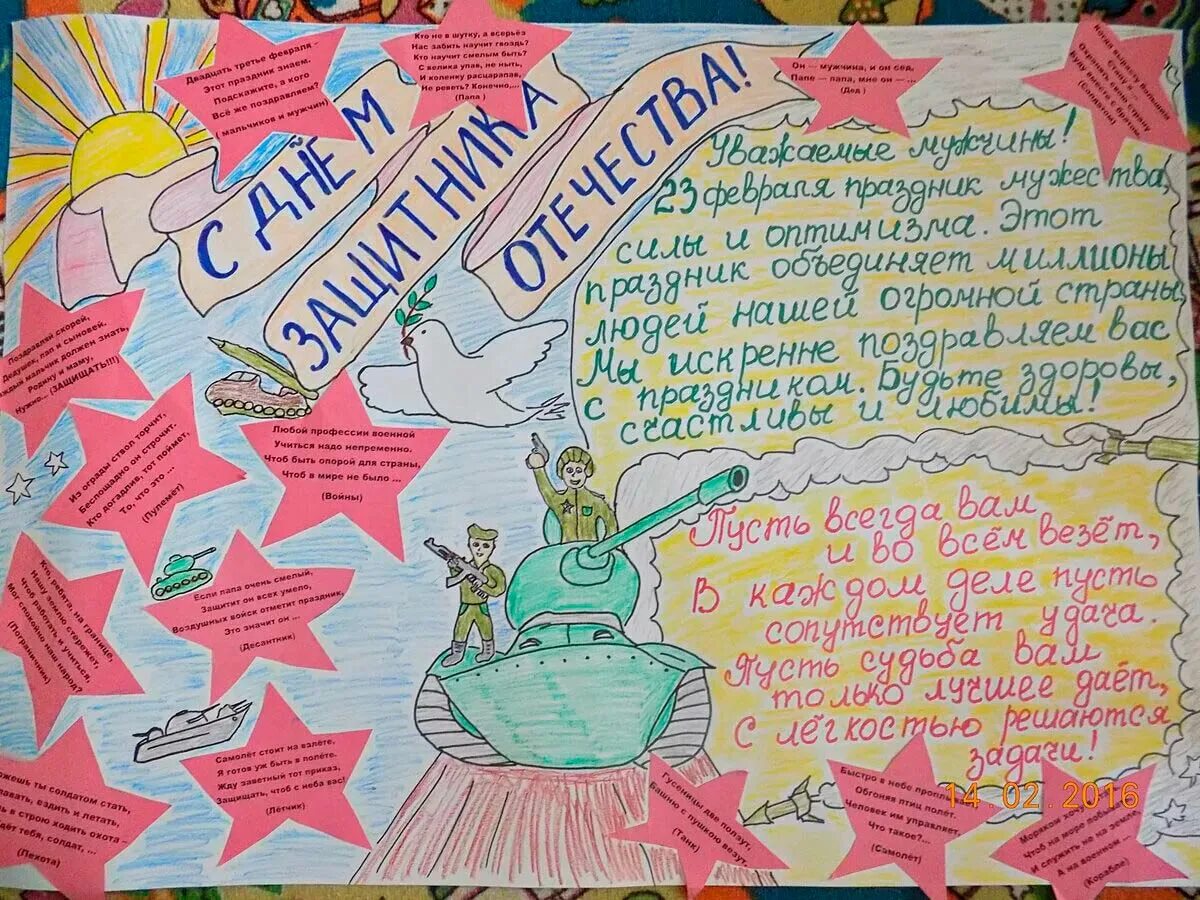 С ДНЁМ
ЗАЩИТНИКА
ОТЕЧЕСТВА!
Двадцать третье февраля -
Этот праздник знаем.
Подскажите, а кого
Всё же поздравляем?
( мальчиков и мужчин)
Кто не в шутку, а всерьёз
Нас забить научит гвоздь?
Кто научит смелым быть?
С велика упав, не ныть,
И коленку расцарапав,
Не реветь? Конечно,...
(Папа )
Он — мужчина, и он сед,
Папе — папа, мне он — ...
(Дед )
Когда вырасту большим
Стану я ...
Охранять свою страну
Буду вместе с братом
(Солдатом)
Уважаемые мужчины!
23 февраля праздник мужества,
силы и оптимизма. Этот
праздник объединяет миллионы
людей нашей огромной страны
Мы искренне поздравляем вас
с праздником. Будьте здоровы,
счастливы и любимы!
Поздравляй скорей,
Дедушек, пап и сыновей.
Каждый мальчик должен знать,
Родину и маму,
Нужно... (ЗАЩИЩАТЬ!!!)
Из ограды ствол торчит,
Беспощадно он строчит.
Кто догадлив, тот поймет,
То, что это ...
(Пулемёт)
Любой профессии военной
Учиться надо непременно.
Чтоб быть опорой для страны,
Чтоб в мире не было ...
(Войны)
Если папа очень смелый,
Защитит он всех умело,
Воздушных войск отметит праздник,
Это значит он ...
(Десантник)
Кто, ребята, на границе,
Нашу землю стережет,
Чтоб работать и учиться,
Мог спокойно наш народ?
(Пограничник)
Самолёт стоит на взлёте,
Я готов уж быть в полёте.
Жду заветный тот приказ,
Защищать, чтоб с неба вас!
(Лётчик)
ожешь ты солдатом стать,
лавать, ездить и летать,
в строю ходить охота –
дёт тебя, солдат, ...
(Пехота)
Пусть всегда вам
и во всём везёт,
В каждом деле пусть
сопутствует удача.
Пусть судьба вам
только лучшее даёт,
С лёгкостью решаются
задачи!
Гусеницы две ползут,
Башню с пушкою везут,
(Танк)
Быстро в небе проплы
Обгоняя птиц полёт.
Человек им управляет.
Что такое?...
(Самолёт)
Моряком хочу
Чтоб на море побыва
И служить не на земле,
А на военном ...
(Корабле)
14.02.2016